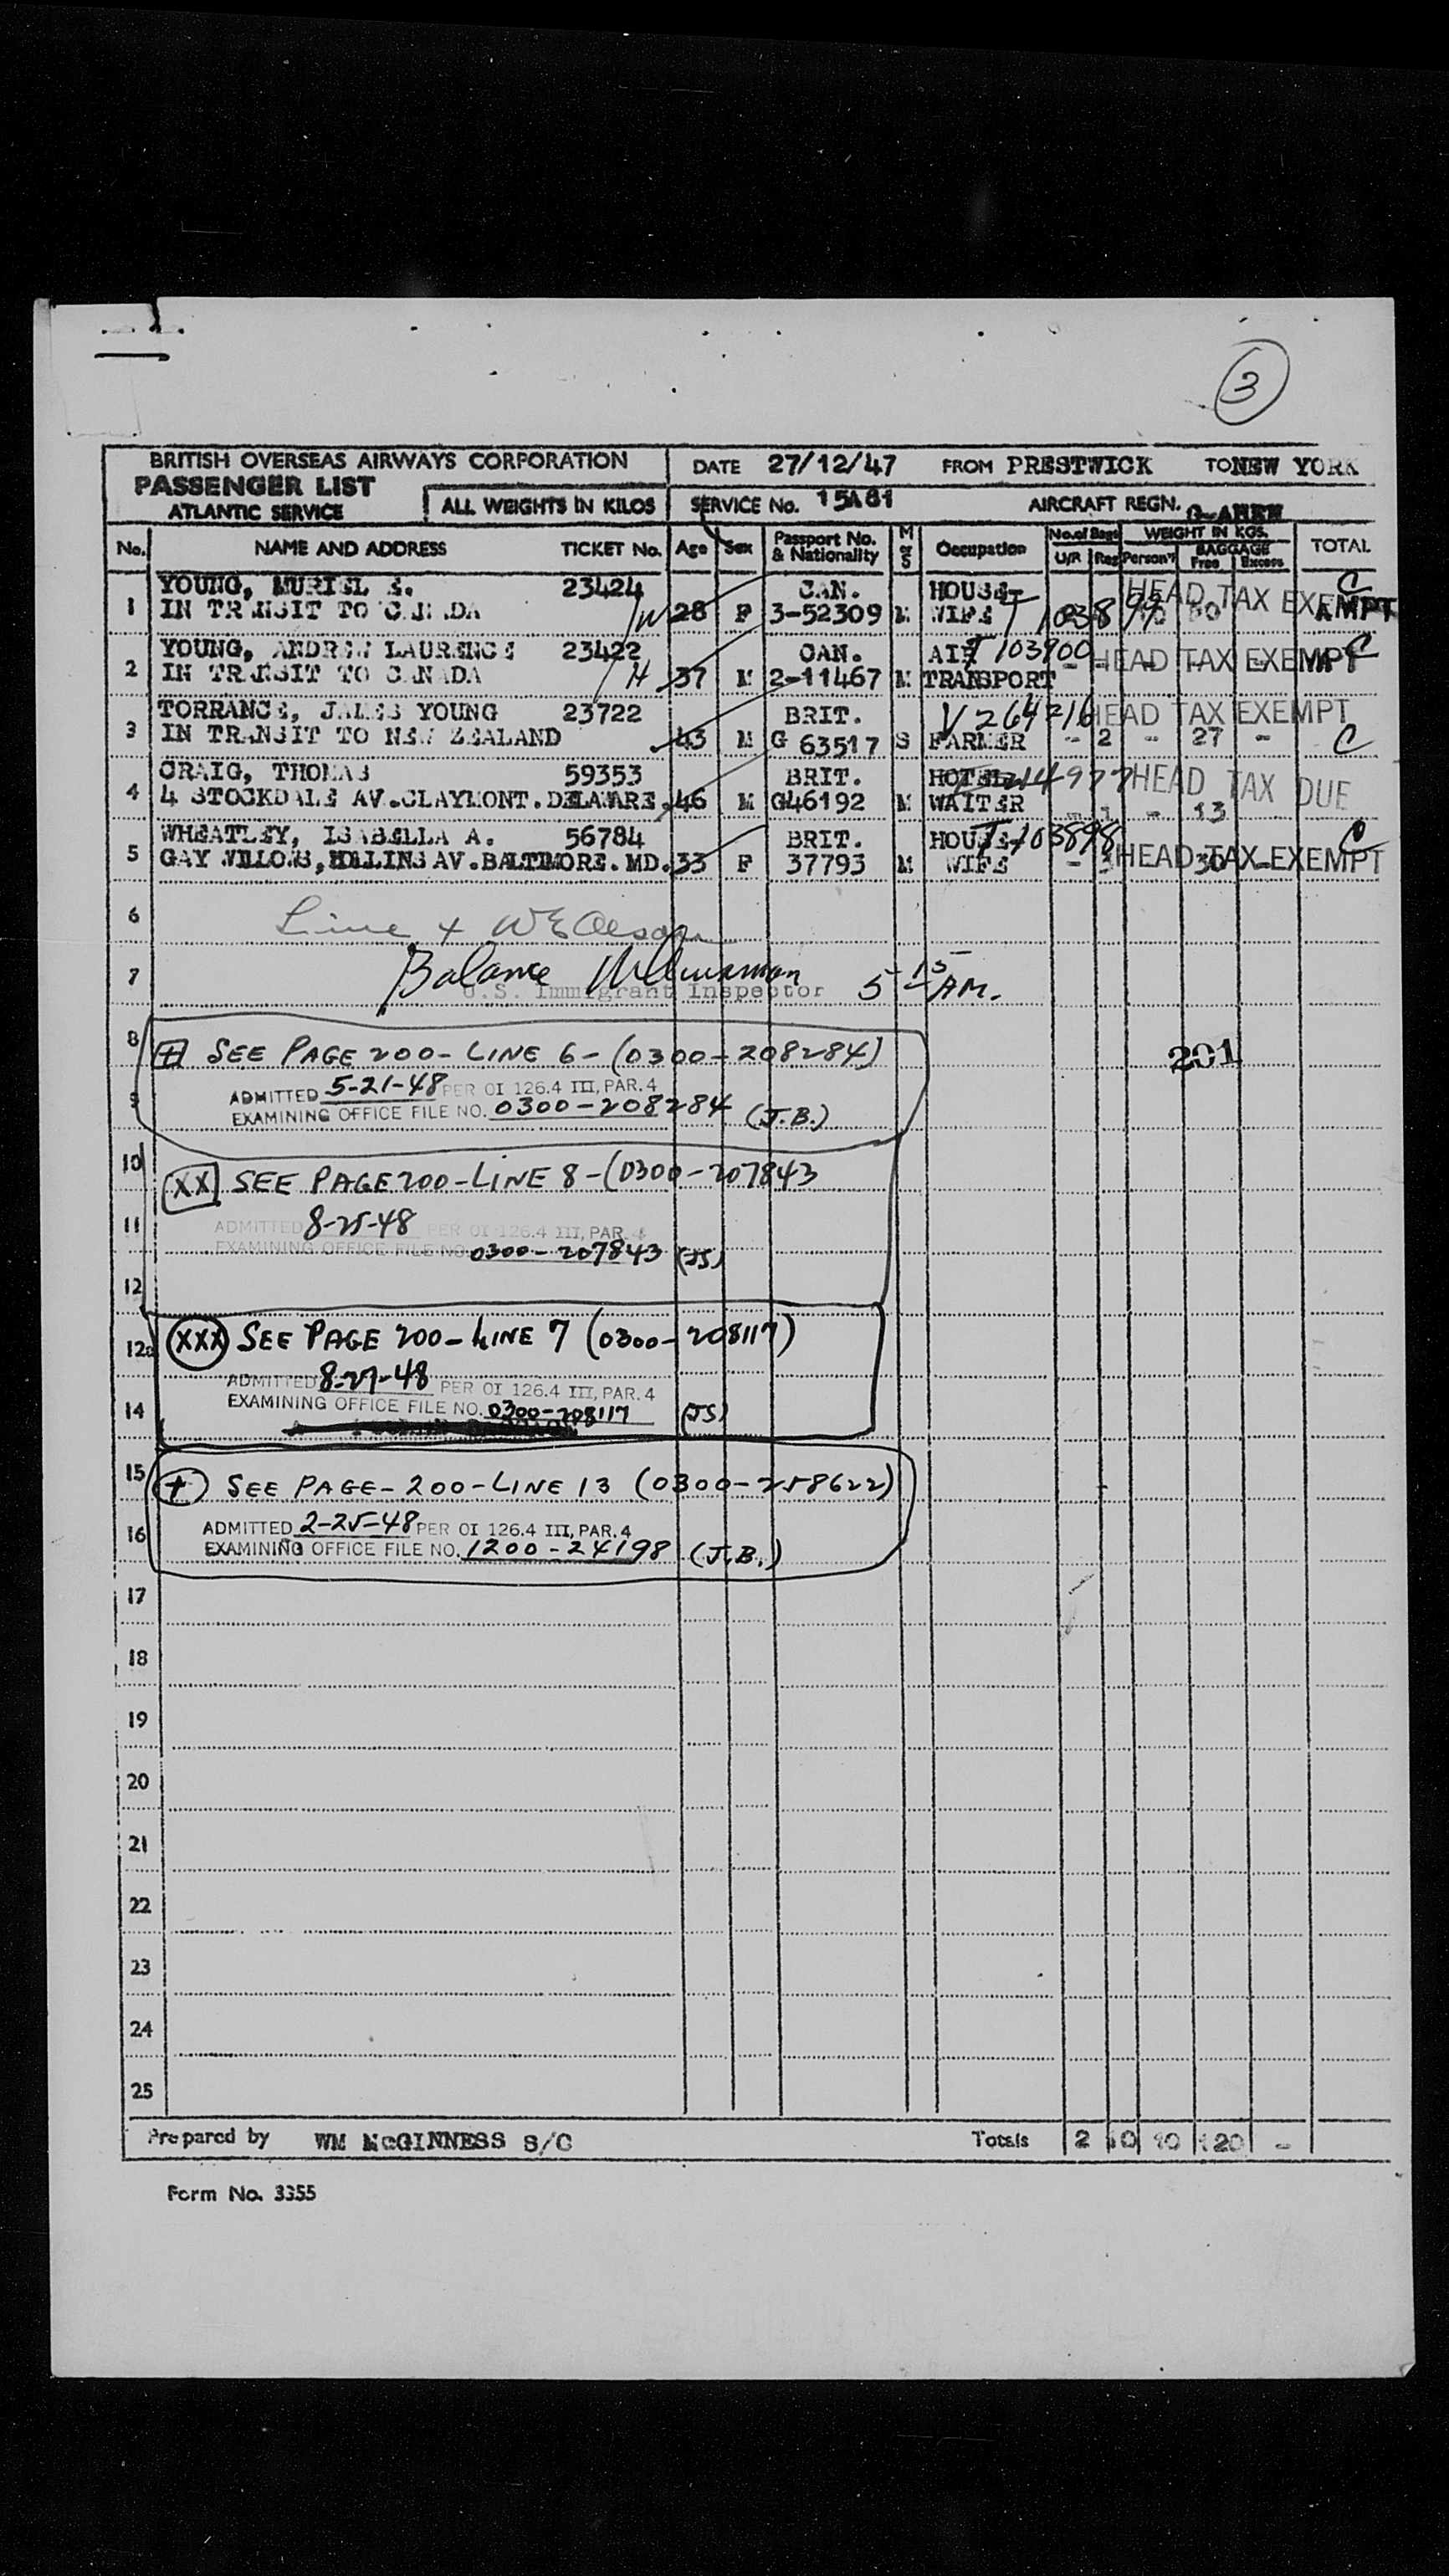 3
BRITISH OVERSEAS AIRWAYS CORPORATION
PASSENGER LIST
ATLANTIC SERVICE
ALL WEIGHTS IN KILOS
DATE 27/12/47 FROM PRESTWICK TO NEW YORK
SERVICE No. 15A81 AIRCRAFT REGN.
No. NAME AND ADDRESS TICKET No. Age Sex Passport No. & Nationality M or S Occupation No. of Bags U/R Reg WEIGHT IN KGS. Person'l BAGGAGE Free Excess TOTAL
YOUNG, MURIEL E. 23424 CAN. HOUSE- C
1 IN TRANSIT TO CANADA W 28 F 3-52309 M WIFE HEAD TAX EXEMPT
YOUNG, ANDREW LAURENCE 23422 CAN. AIR T103900 C
2 IN TRANSIT TO CANADA H 37 M 2-11467 M TRANSPORT HEAD TAX EXEMPT
TORRANCE, JAMES YOUNG 23722 BRIT. V264216 HEAD TAX EXEMPT
3 IN TRANSIT TO NEW ZEALAND 43 M G 63517 S FARMER - 2 - 27 - C
CRAIG, THOMAS 59353 BRIT. HOTEL HEAD TAX DUE
4 4 STOCKDALE AV. CLAYMONT. DELAWARE. 46 M G46192 M WAITER - 13
WHEATLEY, ISABELLA A. 56784 BRIT. HOUSE- T-103898 C
5 GAY WILLOWS, HOLLINS AV. BALTIMORE. MD. 33 F 37793 M WIFE - 3 30 HEAD TAX EXEMPT
6 Line +
7 Balance 5 15 AM.
U.S. Immigrant Inspector
8 + SEE PAGE 200 - LINE 6 - (0300-208284) 201
9 ADMITTED 5-21-48 PER OI 126.4 III, PAR. 4
EXAMINING OFFICE FILE NO. 0300-208284 (J.B.)
10 XX SEE PAGE 200 - LINE 8 - (0300-207843
11 ADMITTED 8-25-48 PER OI 126.4 III, PAR. 4
EXAMINING OFFICE FILE NO. 0300-207843 (JS)
12
12a XXX SEE PAGE 200 - LINE 7 (0300-208117)
ADMITTED 8-27-48 PER OI 126.4 III, PAR. 4
14 EXAMINING OFFICE FILE NO. 0300-208117 (JS)
15 + SEE PAGE - 200 - LINE 13 (0300-258622)
16 ADMITTED 2-25-48 PER OI 126.4 III, PAR. 4
EXAMINING OFFICE FILE NO. 1200-24198 (J.B.)
17
18
19
20
21
22
23
24
25
Prepared by WM McGINNESS S/C Totals 2 10 120 -
Form No. 3355